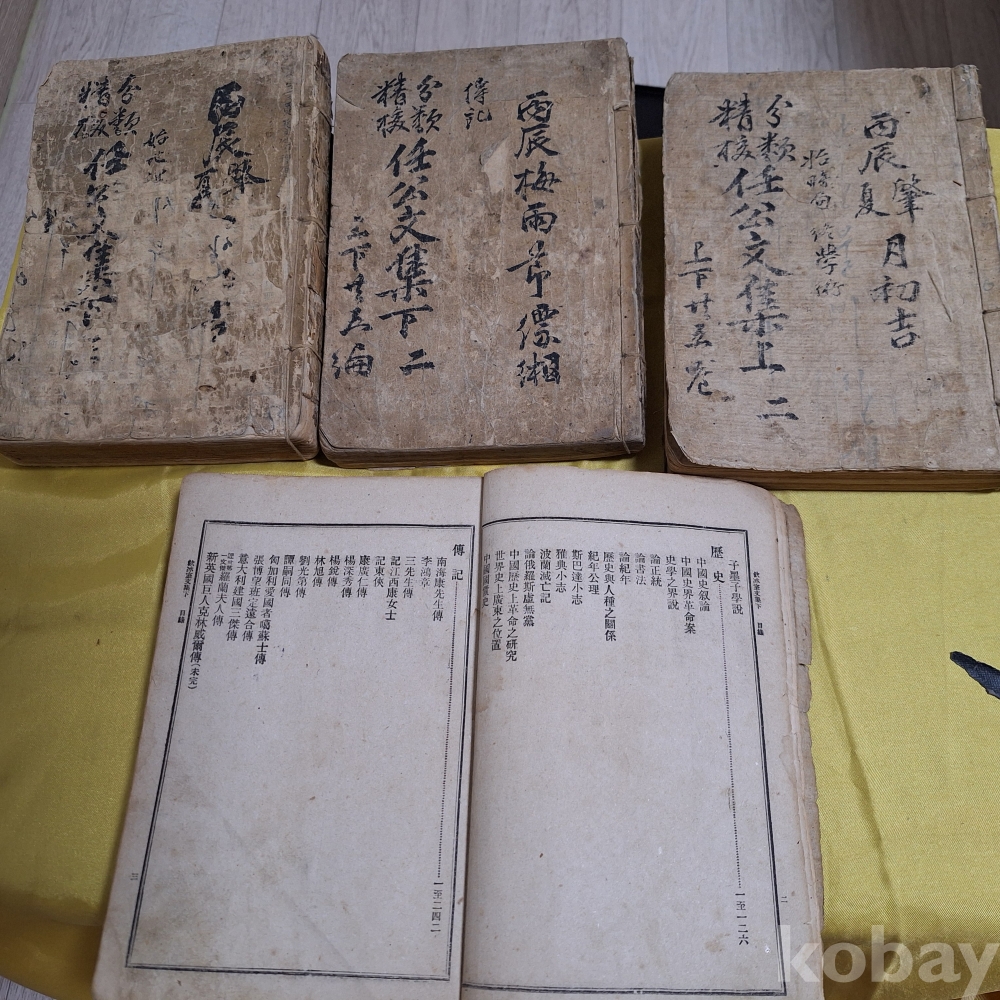 丙辰肇
夏
分類
精校
任公文集
丙辰梅雨節縹緗
傳記
分類
精校
任公文集下二
上下廿五編
丙辰肇月初吉
夏
始時局終學術
分類
精校
任公文集上二
上下廿五卷
飲冰室文集下 目錄
子墨子學說
歷史 一至一二六
中國史叙論
中國史界革命案
史學之界說
論正統
論書法
論紀年
歷史與人種之關係
紀年公理
斯巴達小志
雅典小志
波蘭滅亡記
論俄羅斯虛無黨
中國歷史上革命之研究
世界史上廣東之位置
二
傳記 一至二四二
南海康先生傳
李鴻章
三先生傳
記江西康女士
記東俠
康廣仁傳
楊深秀傳
楊銳傳
林旭傳
劉光第傳
譚嗣同傳
匈加利愛國者噶蘇士傳
張博望班定遠合傳
意大利建國三傑傳
羅蘭夫人傳
新英國巨人克林威爾傳(未完)
飲冰室文集下 目錄
三
kobay